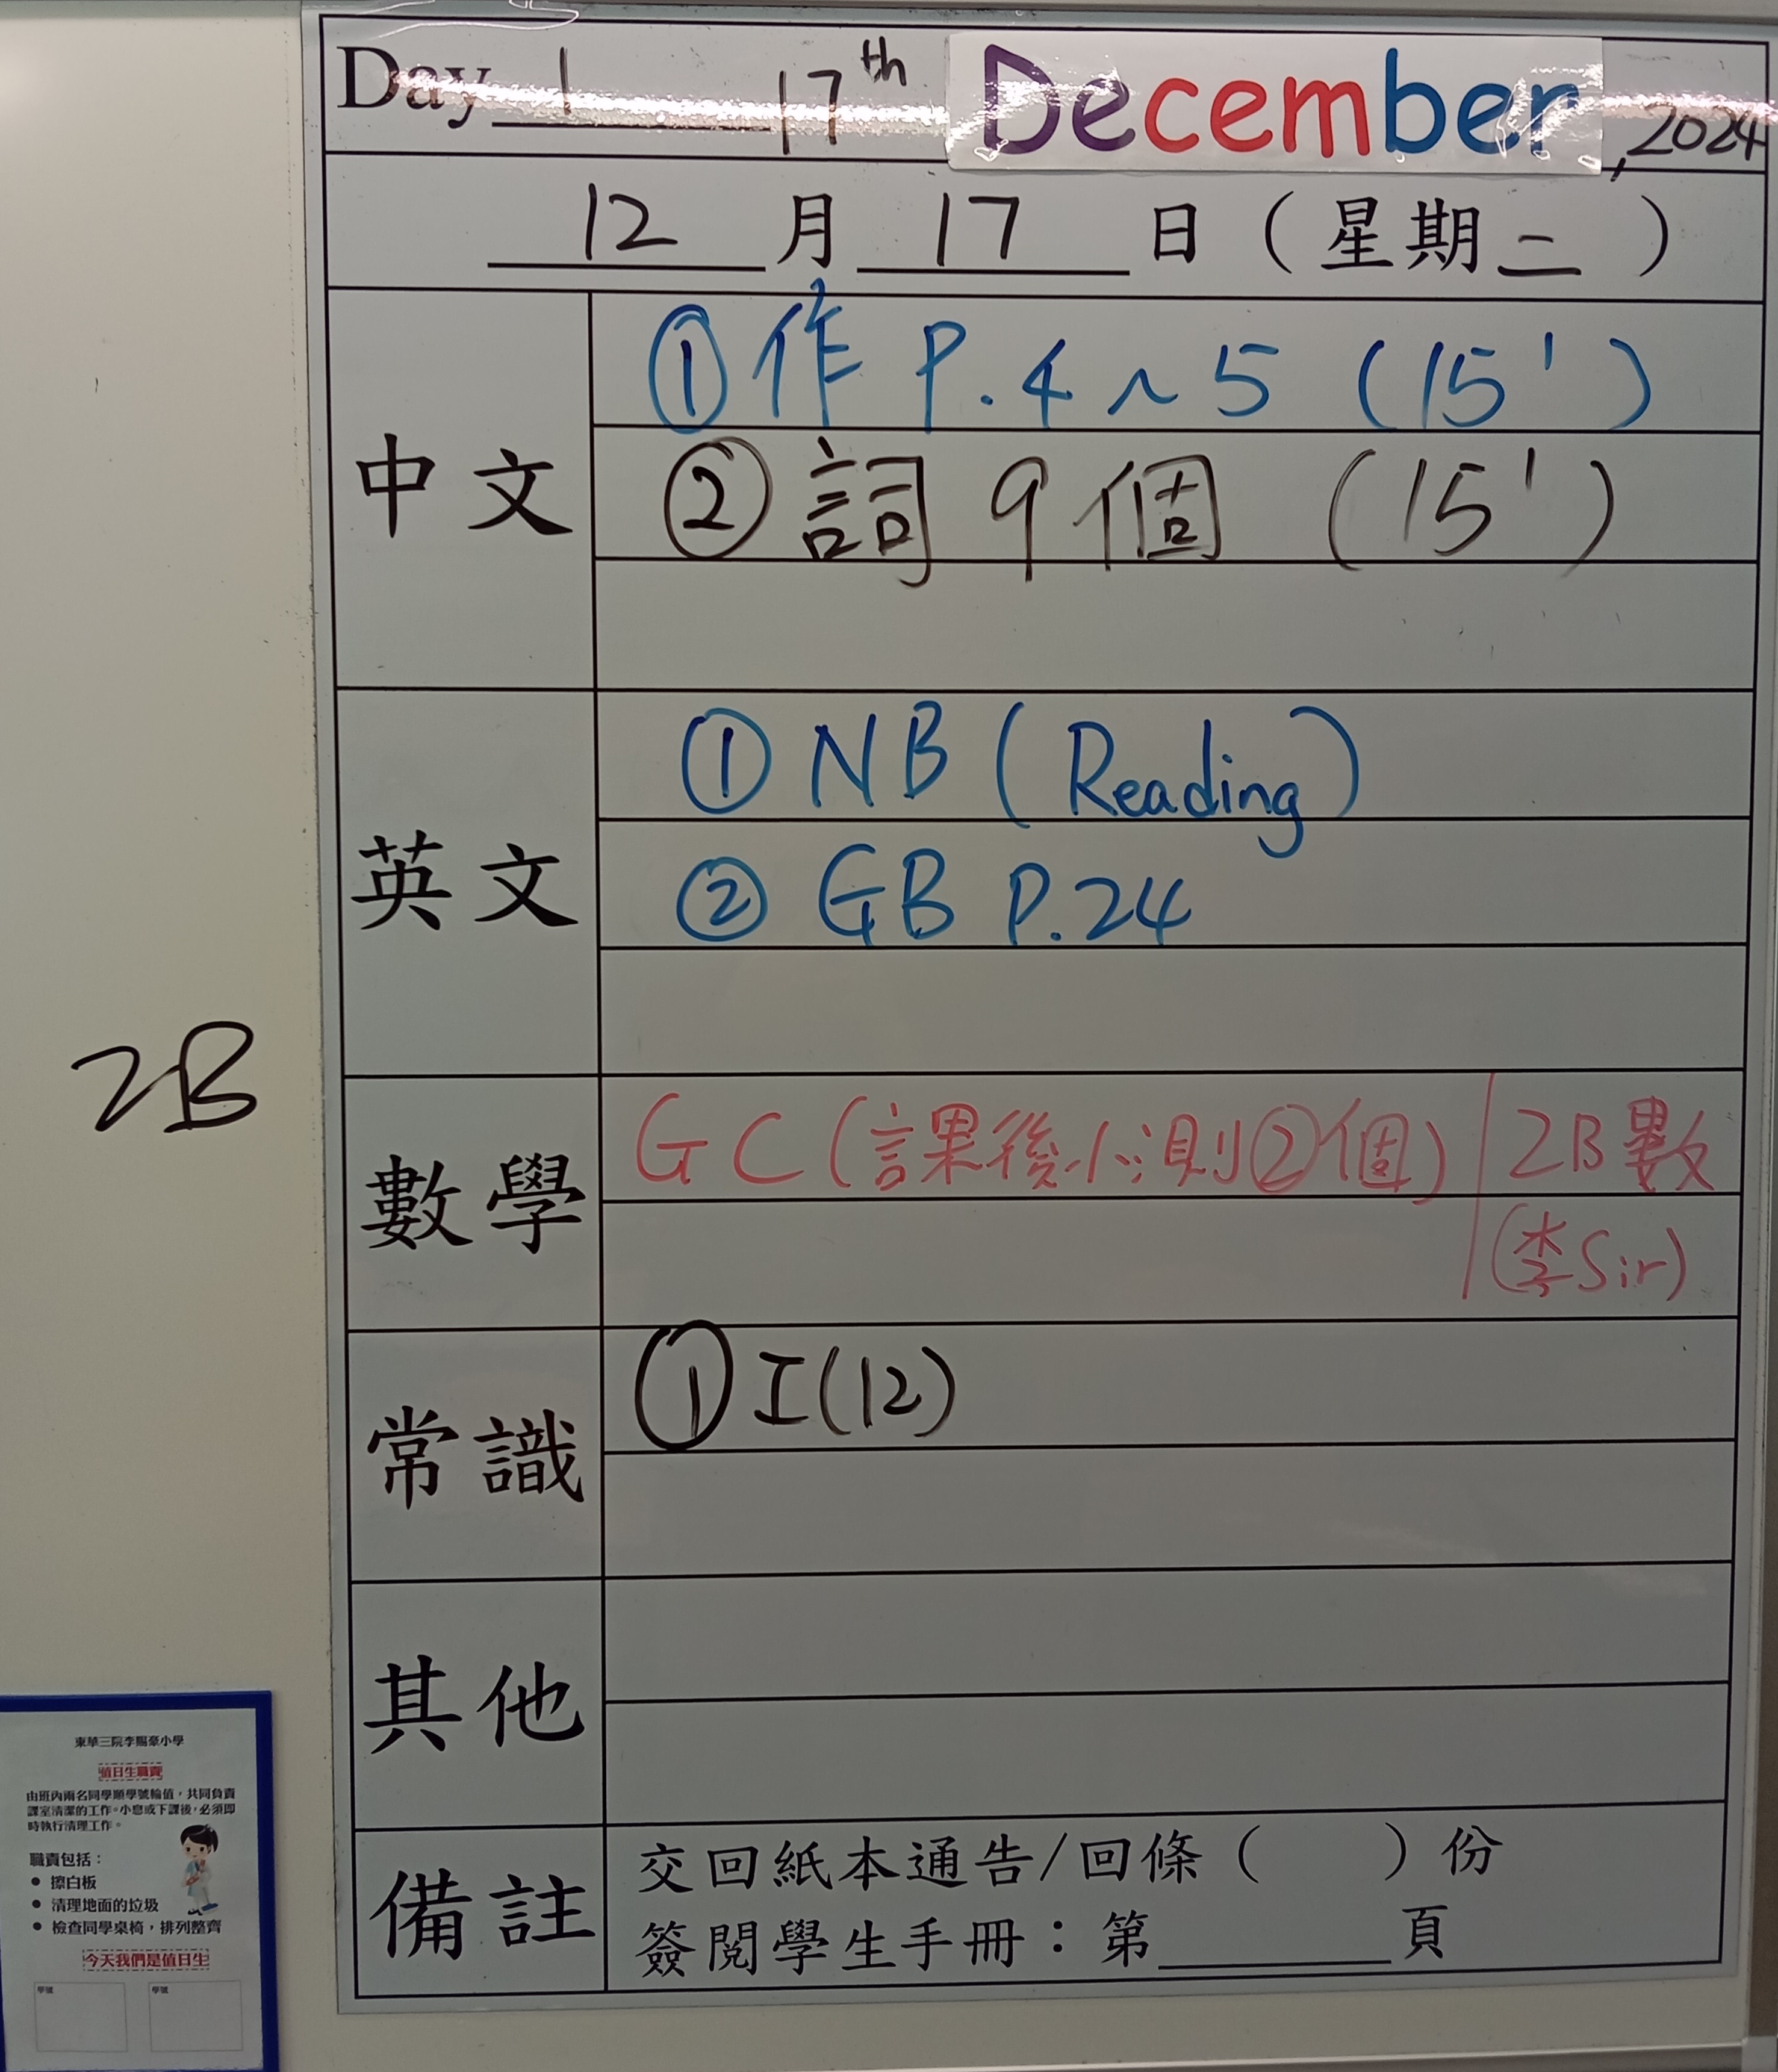 Day 1 17th December, 2024
12 月 17 日 (星期二)
中文
①作 P.4~5 (15')
②詞9個 (15')
英文
① NB (Reading)
② GB P.24
數學
GC (課後小測②個) | 2B數
(李Sir)
常識
① I(12)
其他
備註
交回紙本通告/回條( )份
簽閱學生手冊:第______頁
2B
東華三院李賜豪小學
值日生職責
由班內兩名同學順學號輪值,共同負責
課室清潔的工作。小息或下課後,必須即
時執行清理工作。
職責包括:
● 擦白板
● 清理地面的垃圾
● 檢查同學桌椅,排列整齊
今天我們是值日生
學號 學號